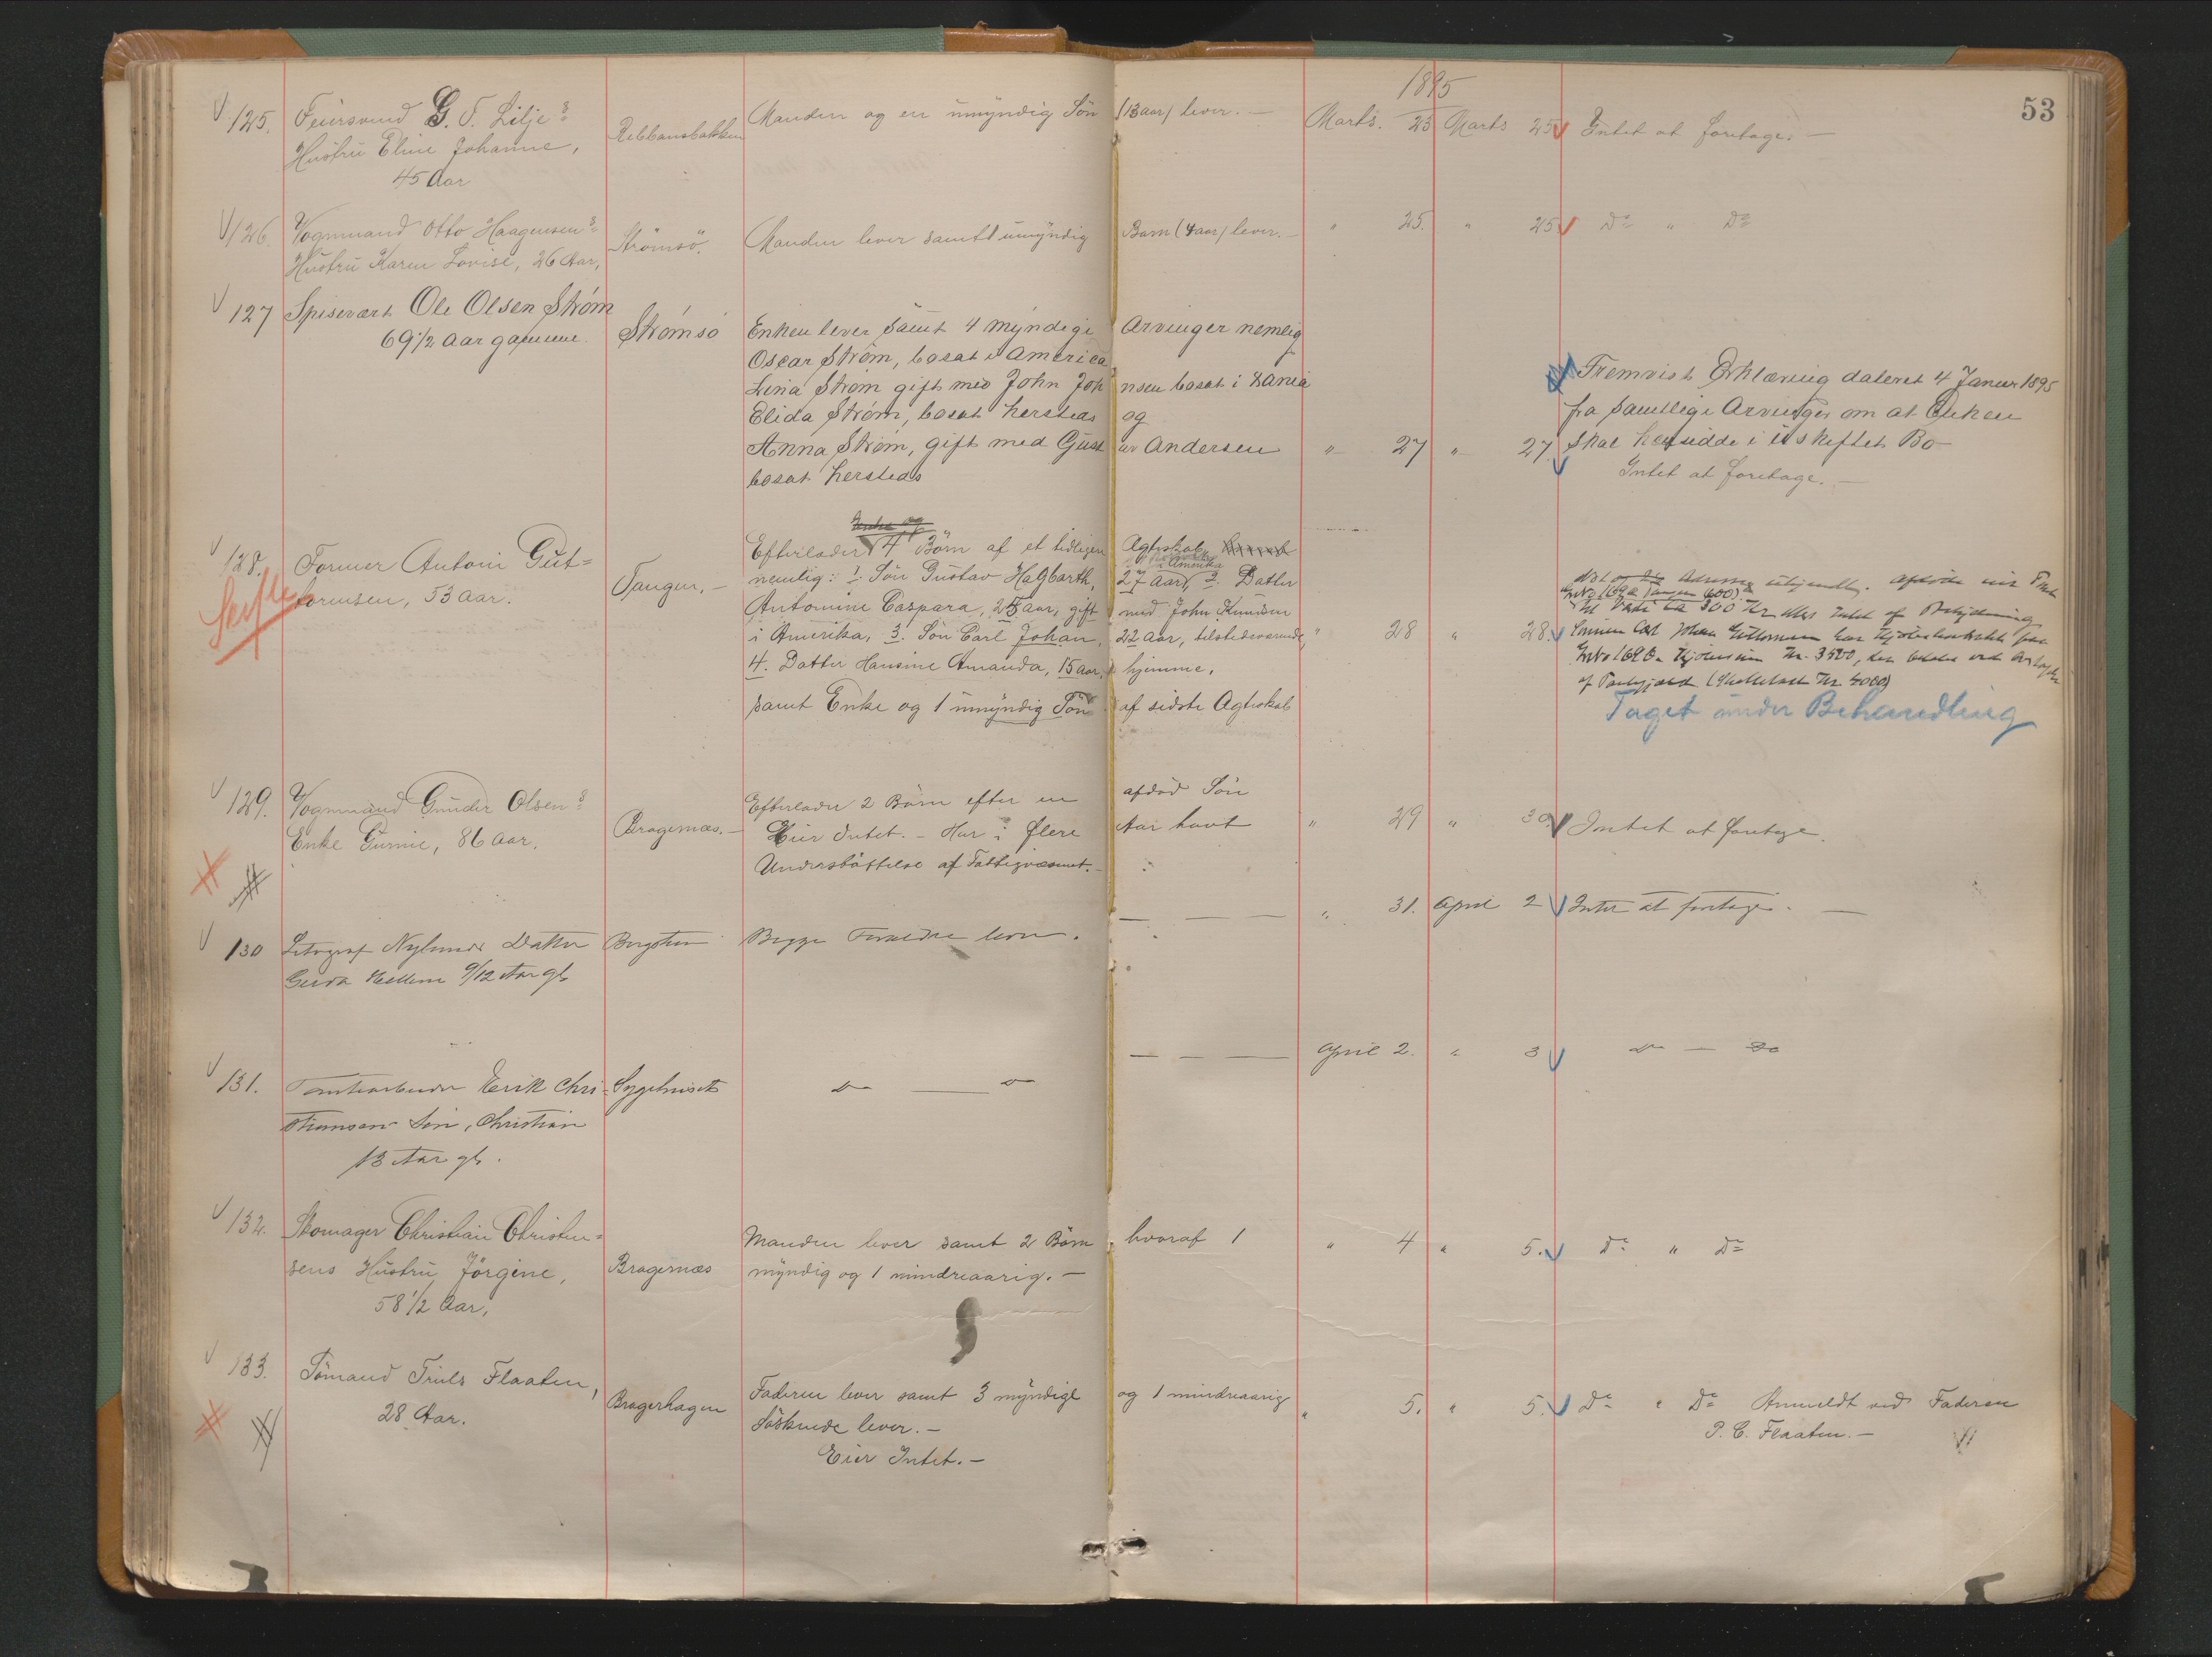 1895
53
125. Feiersvend G. T. Lilje's
Hustru Eline Johanne,
45 Aar
Rebbansbakken
Manden og en umyndig Sön (13 aar) lever. —
Marts. 23 Marts 25 Intet at foretage. —
126. Vognmand Otto Haagensen's
Hustru Karen Lovise, 26 Aar,
Strömsö.
Manden lever samt 1 umyndig Barn (4 aar) lever. —
" 25. " 25 Do " Do
127 Spisevært Ole Olsen Strøm
69 1/2 Aar gammel.
Strømsö
Enken lever samt 4 myndige Arvinger nemlig
Oscar Strøm, bosat i America
Lina Strøm gift med John Johnsen bosat i
Elida Strøm, bosat hersteds og
Anna Strøm, gift med Gustav Andersen
bosat hersteds
" 27 " 27
Fremvist Erklæring dateret 4 Januar 1895
fra samtlige Arvinger om at Enken
skal hensidde i uskiftet Bo
Intet at foretage. —
128. Former Antoni Gut=
tormsen, 53 Aar.
Tangen. —
Enke og
Efterlader 4 Börn af et tidligere Ægteskab
i Amerika
nemlig: 1. Sön Gustav Hagbarth, 27 aar, 2. Datter
Antonine Caspara, 25 aar, gift med John Knudsen
i Amerika, 3. Sön Carl Johan, 22 Aar, tilstedeværende,
4. Datter Hansine Amanda, 15 aar, hjemme.
samt Enke og 1 umyndig Sön af sidste Ægteskab
" 28 " 28.
Sönnen Carl Johan Guttormsen har
Taget under Behandling
129. Vognmand Gunder Olsen's
Enke Gunnie, 86 Aar.
Bragernæs. —
Efterlader 2 Börn efter en afdöd Sön
Eier Intet. — Har i flere Aar havt
Understöttelse af Fattigvæsenet. —
" 29 " 30 Intet at foretage.
130 Litograf Nylunds Datter
Gerda 9/12 Aar gl.
Begge Forældre lever.
" 31. April 2 Intet at foretage. —
131. Tomtearbeider Erik Chri-
stiansens Sön, Christian
13 Aar gl.
Sygehuset
do — do
April 2. " 3 do — do
132. Skomager Christian Christen=
sens Hustru Jörgine,
58 1/2 Aar,
Bragernæs
Manden lever samt 2 Börn, hvoraf 1
myndig og 1 mindreaarig. —
" 4 " 5. Do " Do
133. Sömand Truls Flaaten,
28 Aar.
Bragerhagen
Faderen lever samt 3 myndige og 1 mindreaarig
Söskende lever. —
Eier Intet. —
" 5. " 5. Do " Do Anmeldt ved Faderen
P. C. Flaaten. —